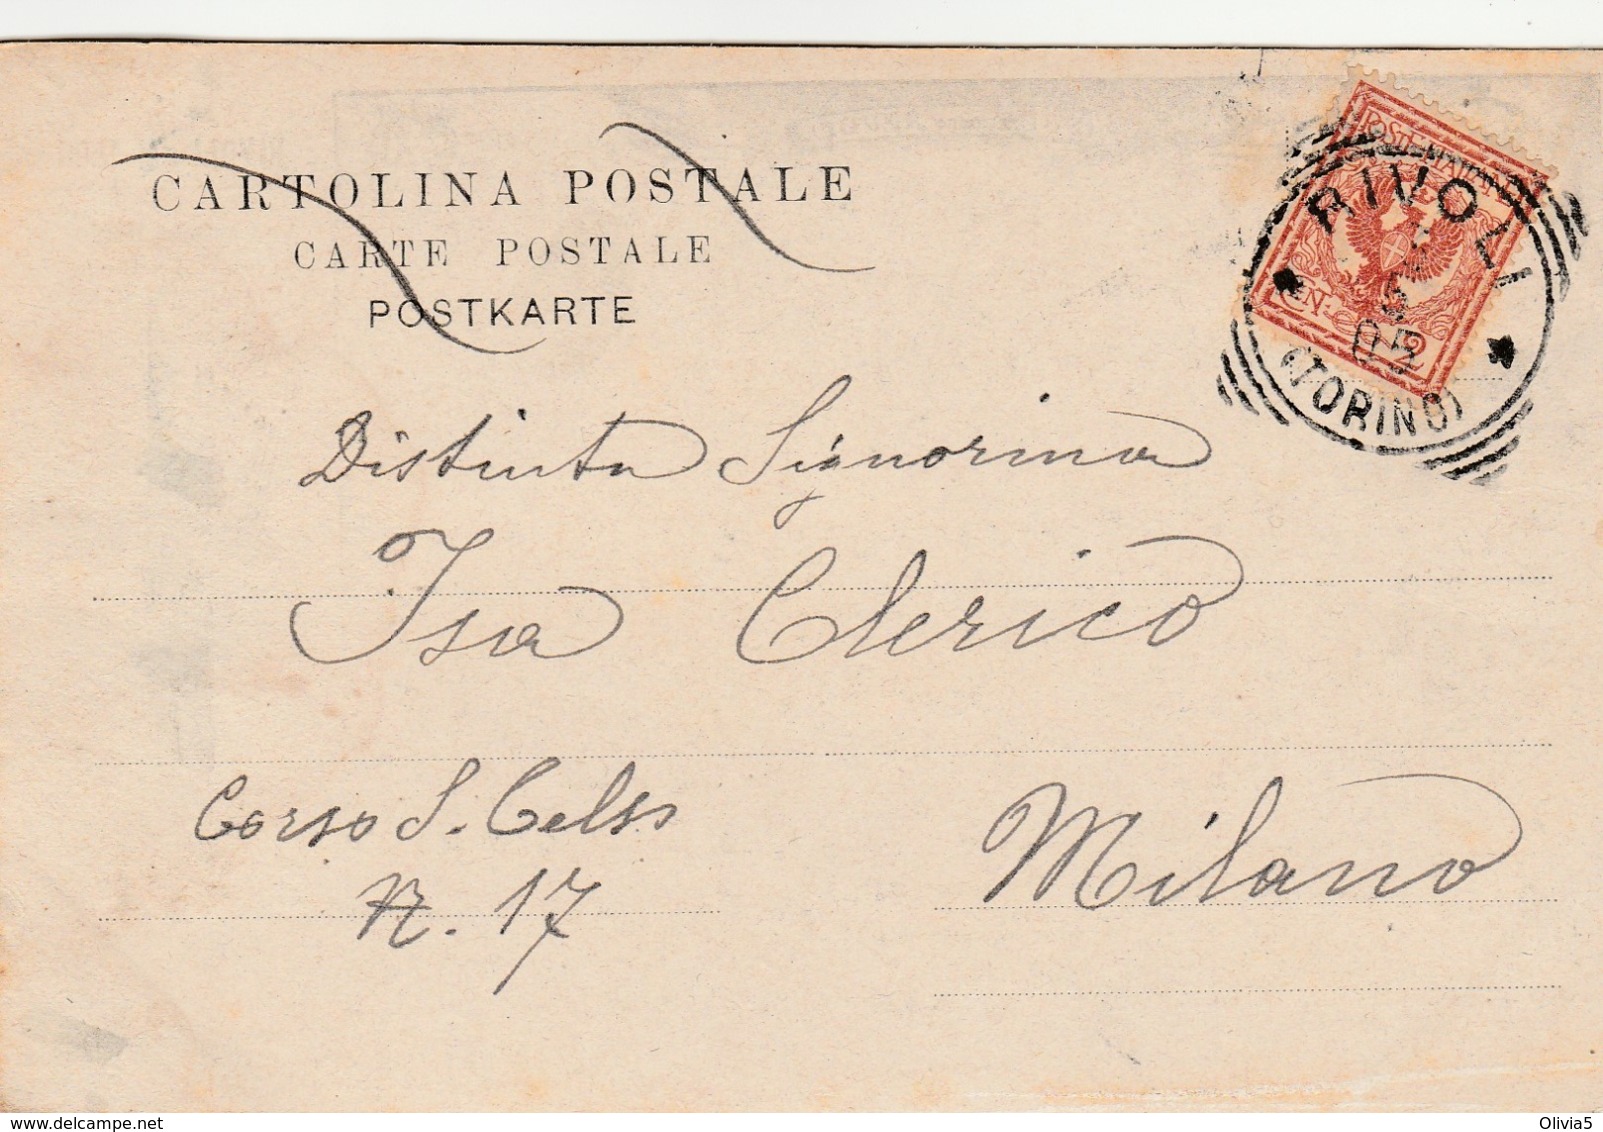 CARTOLINA POSTALE
CARTE POSTALE
POSTKARTE
POSTE ITALIANE
CEN. 2
RIVOLI
5
05
(TORINO)
Distinta Signorina
Isa Clerico
Corso S. Celso
N. 17
Milano
delcampe.net
Olivia5